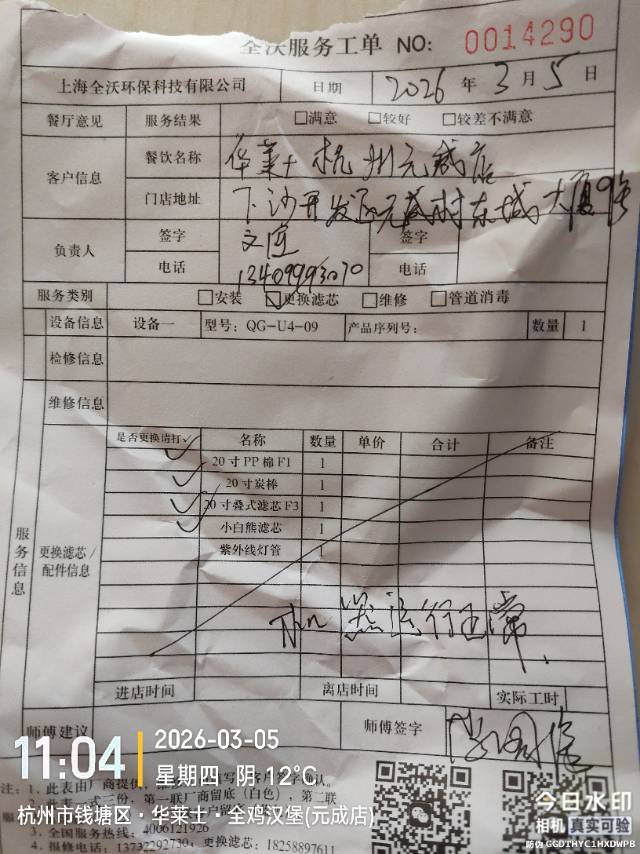 全沃服务工单 NO: 0014290
上海全沃环保科技有限公司 日期 2026年3月5日
餐厅意见 服务结果 □满意 □较好 □较差不满意
客户信息 餐饮名称 华莱士杭州元成店
门店地址 下沙开发区元成村东城大厦9幢
负责人 签字 文 签字
电话 13409993070 电话
服务类别 □安装 ☑更换滤芯 □维修 □管道消毒
设备信息 设备一 型号: QG-U4-09 产品序列号: 数量 1
检修信息
维修信息
服务信息
更换滤芯/配件信息
是否更换请打✓ 名称 数量 单价 合计 备注
✓ 20寸PP棉F1 1
✓ 20寸炭棒 1
✓ 20寸叠式滤芯F3 1
✓ 小白熊滤芯 1
紫外线灯管 1
机器运行正常.
进店时间 离店时间 实际工时
师傅建议 师傅签字
11:04
2026-03-05
星期四 阴 12°C
杭州市钱塘区·华莱士·全鸡汉堡(元成店)
注: 1. 此表由厂商提供,
2. 此表一式二份, 第一联厂商留底(白色), 第二联
3. 全国服务热线: 4006121926
4. 报修电话: 13732292730; 18258897611
今日水印
相机 真实可验
防伪 GGDTHYC1HXDWPB